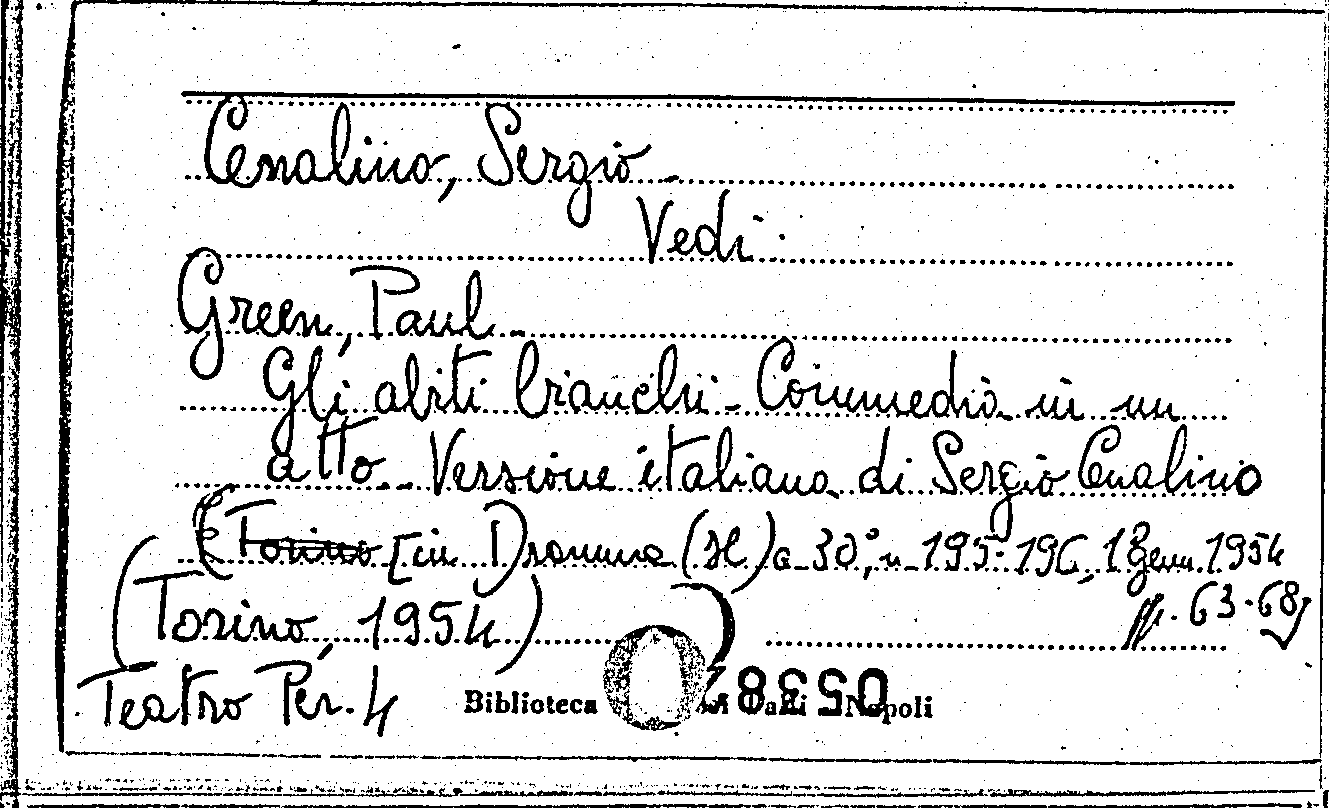 Cenalino, Sergio -
Vedi:
Green, Paul -
Gli abiti bianchi - Commedia in un
atto - Versione italiana di Sergio Cenalino
(Torino [in Dramma (Il) a. 30°, n. 195-196, 1 Genn. 1954
pp. 63-68]
(Torino, 1954)
Teatro Per. 4
Biblioteca Napoli